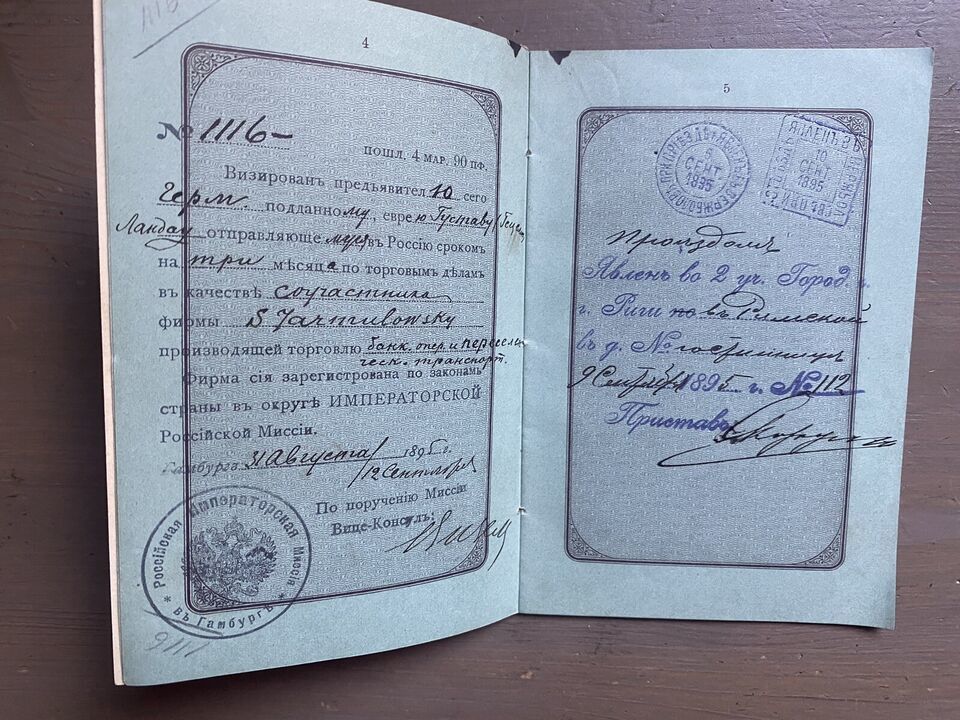 4
№ 1116-
ПОШЛ. 4 МАР. 90 ПФ.
Визированъ предъявителю сего
герм. подданному, еврею Густаву
Ландау отправляющемуся въ Россію срокомъ
на три мѣсяца по торговымъ дѣламъ
въ качествѣ соучастника
фирмы S Jarmulowsky
производящей торговлю банк. опер. и пересел
ческ. транспорт.
Фирма сія зарегистрована по законамъ
страны въ округѣ ИМПЕРАТОРСКОЙ
Россійской Миссіи.
Гамбургъ 31 Августа/ 1895 г.
/12 Сентября
По порученію Миссіи
Вице-Консулъ:
* Россійская Императорская Миссія * въ Гамбургѣ
9111
5
СЕНТ
1895
ЯВЛЕНЪ ВЪ
10
СЕНТ
1895
Проѣздомъ
Явленъ во 2 уч. Город. ч.
г. Риги по въ Римской
въ д. № гостинницѣ
9 Сентября 1895 г. № 112
Приставъ